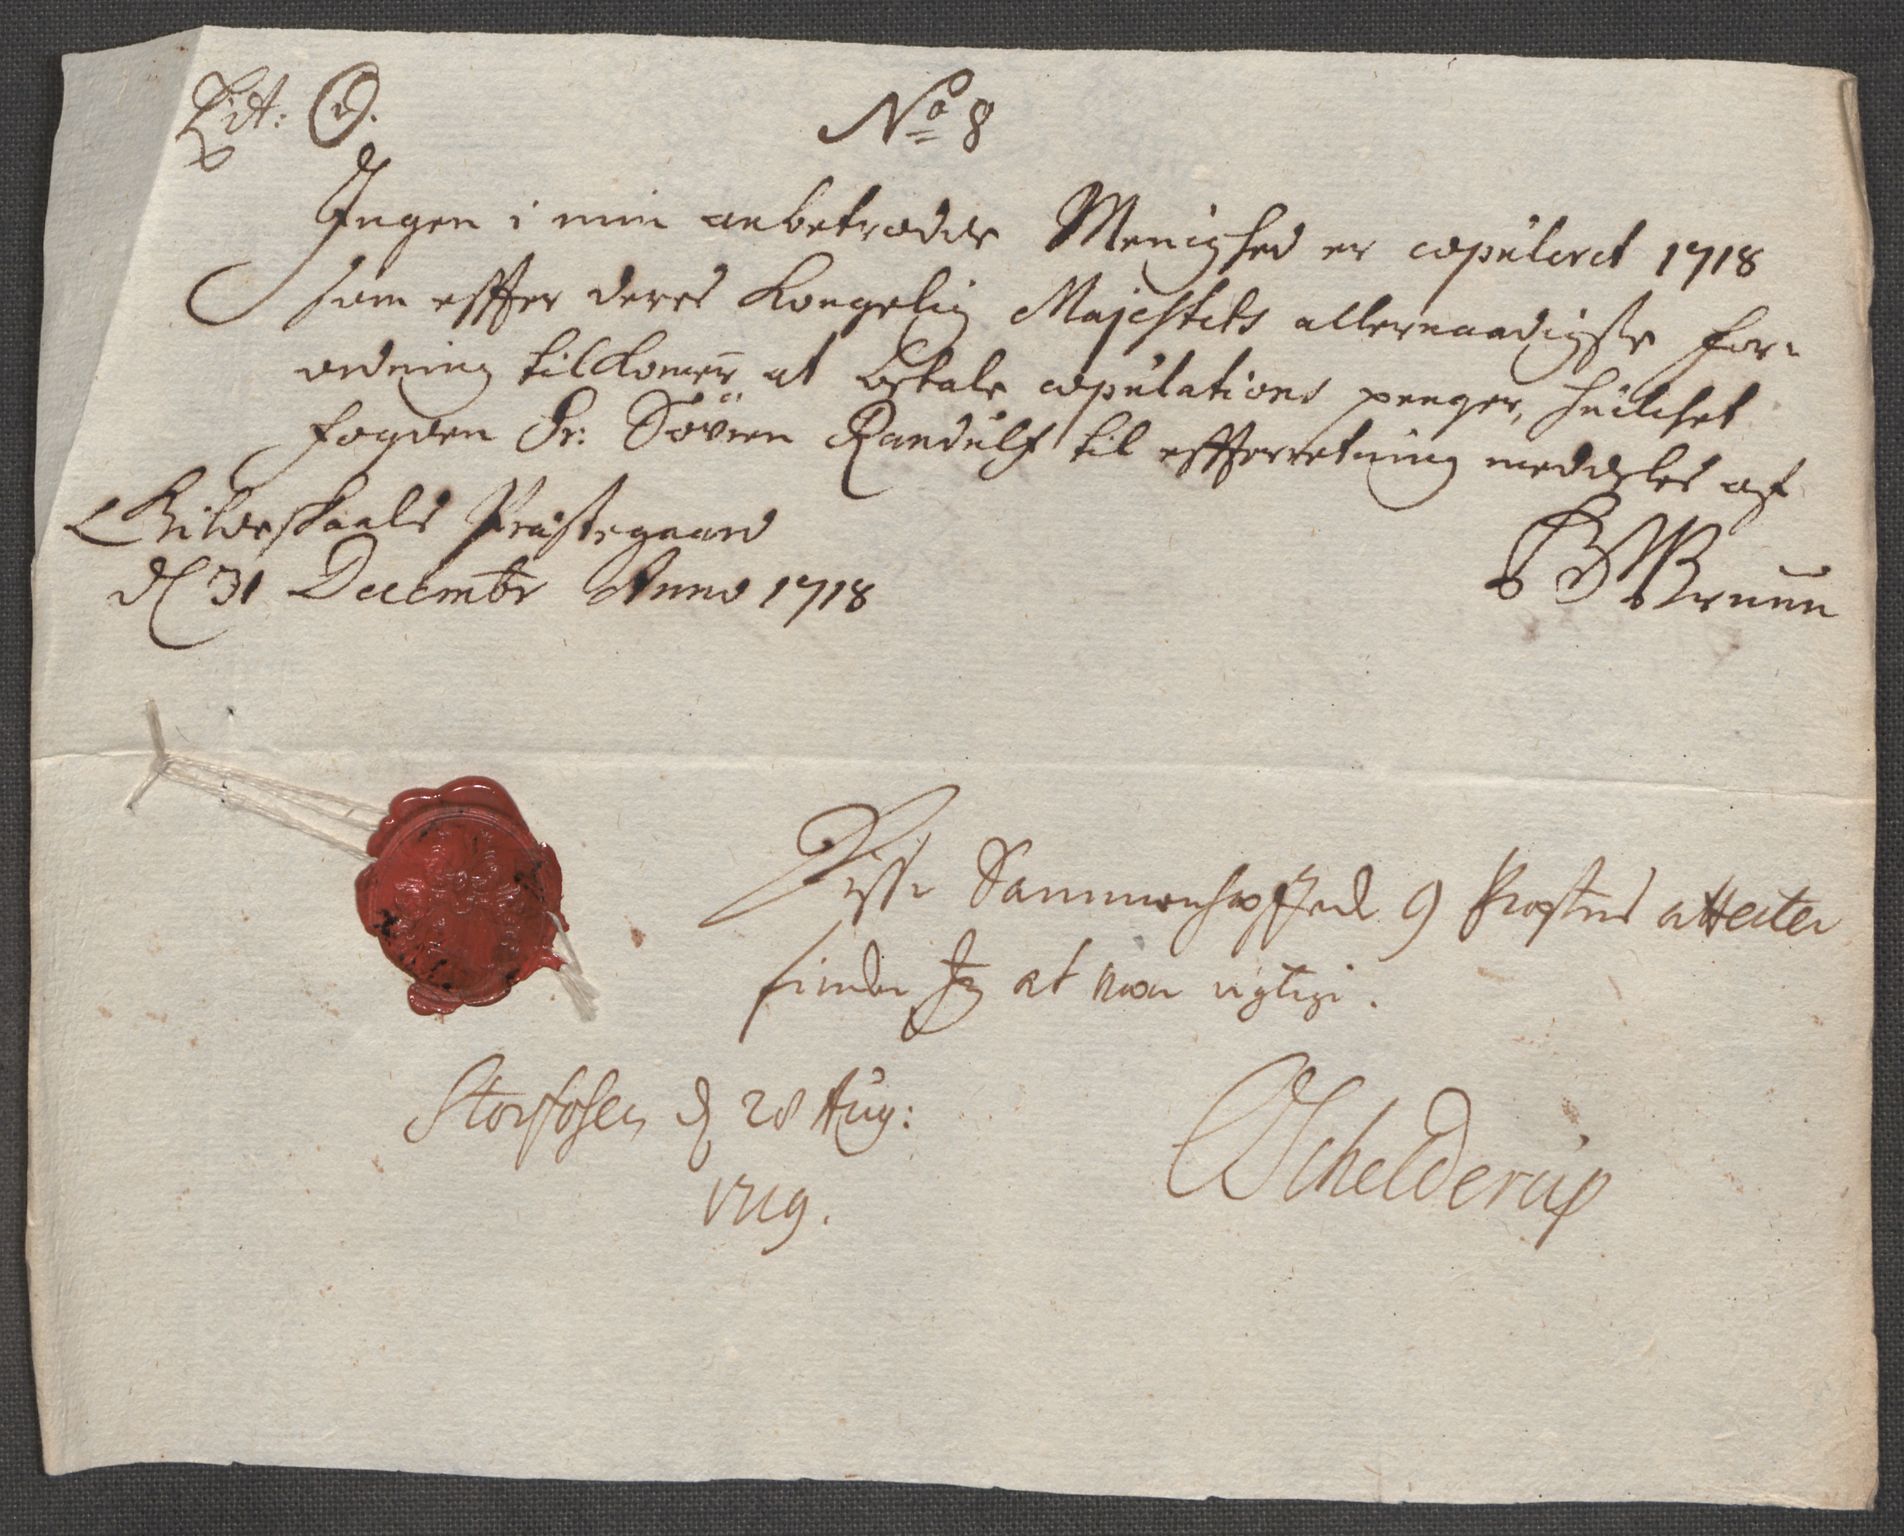 Lit: O.
No 8
Ingen i min anbetrodde Menighed er copuleret 1718
som effter deres Kongelig Majestets allernaadigste for-
ordning tilkomer at betale copulations penger, huilchet
fogden Sr: Sövren Randulf til effterretning meddeles af
Gildeskaals Præstegaard
d 31 Decembr Anno 1718
Bruun
Disse Sammenhæftede 9 Præstens attester
finder Jeg at vær rigtige.
Storfosen d 28 Aug:
1719.
Schelderup